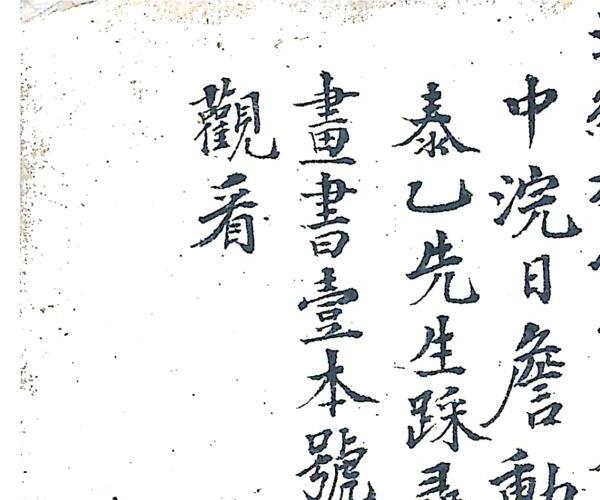 中浣日詹動
泰乙先生踩尋
畫書壹本號
觀看